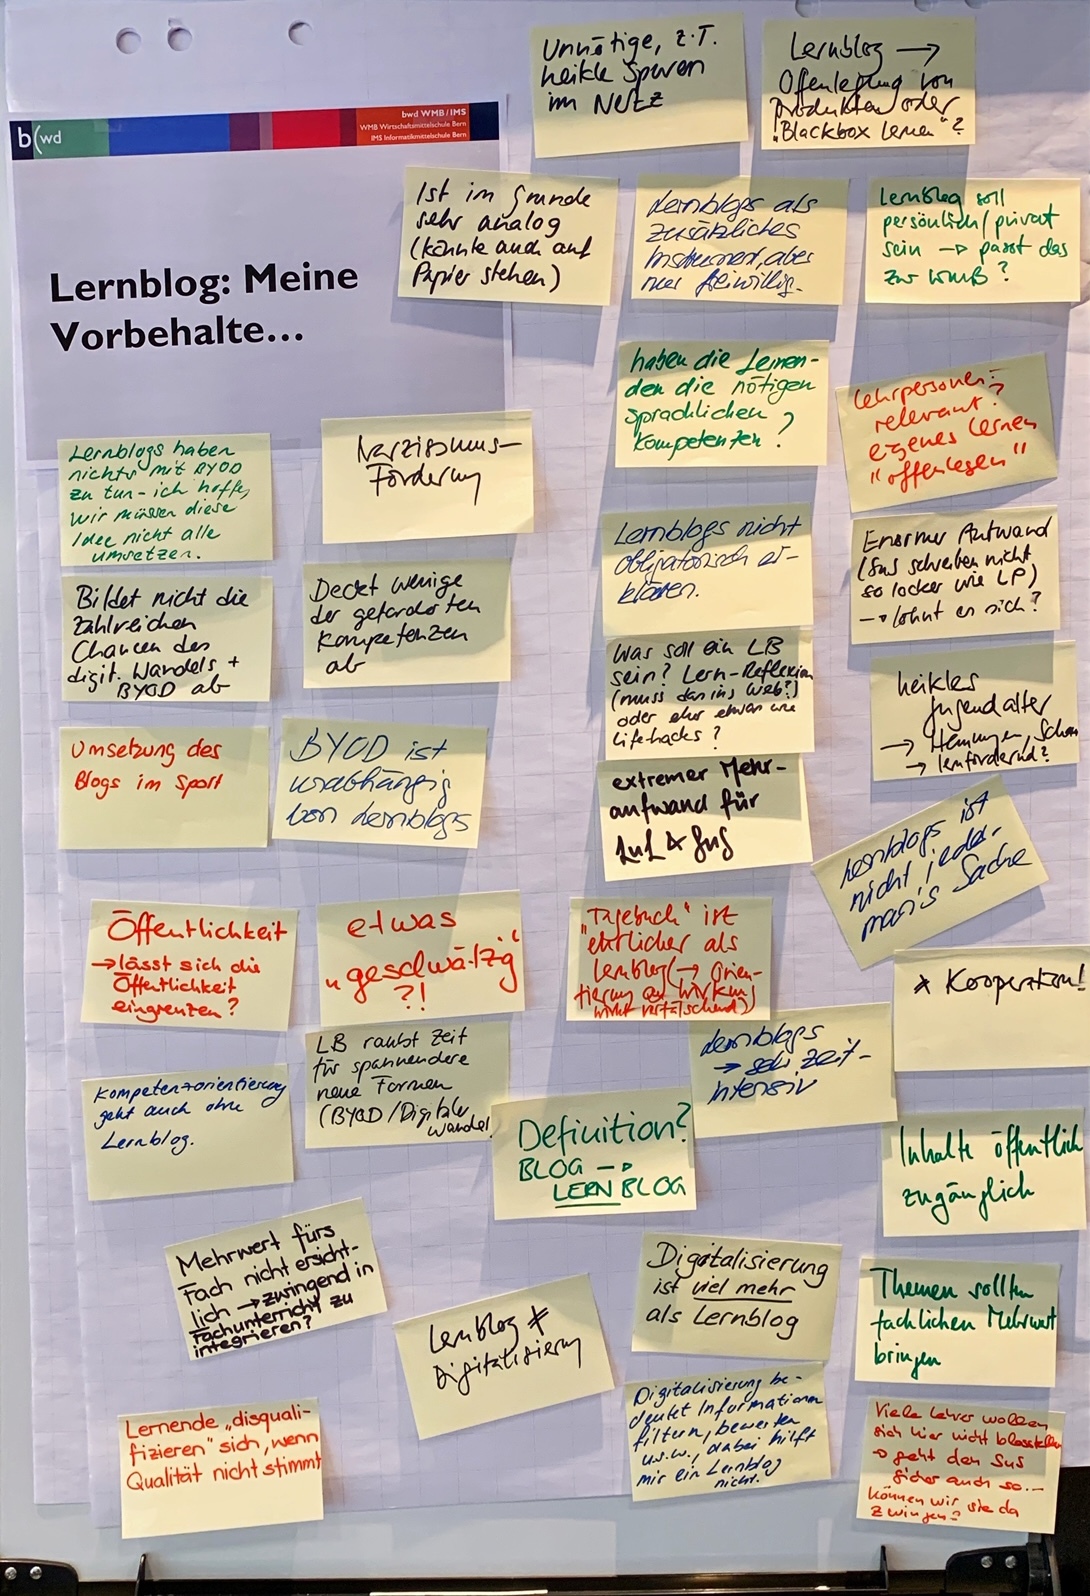 Unnötige, z.T.
heikle Spuren
im Netz
Lernblog →
Offenlegung von
Produkten oder
"Blackbox lernen"?
b(wd
bwd WMB/IMS
WMB Wirtschaftsmittelschule Bern
IMS Informatikmittelschule Bern
Lernblog: Meine
Vorbehalte...
Ist im Grunde
sehr analog
(könnte auch auf
Papier stehen)
Lernblogs als
zusätzliches
Instrument, aber
nur freiwillig.
Lernblog soll
persönlich/privat
sein → passt das
zur WMB?
haben die Lernen-
den die nötigen
sprachlichen
Kompetenzen?
Lehrpersonen:
relevant?
eigenes Lernen
"offenlegen"
Lernblogs haben
nichts mit BYOD
zu tun - ich hoffe,
wir müssen diese
Idee nicht alle
umsetzen.
Narzissmus-
Förderung
Lernblogs nicht
obligatorisch er-
klären.
Enormer Aufwand
(SuS schreiben nicht
so locker wie LP)
→ lohnt es sich?
Bildet nicht die
zahlreichen
Chancen des
digit. Wandels +
BYOD ab
Deckt wenige
der geforderten
Kompetenzen
ab
Was soll ein LB
sein? Lern-Reflexion
(muss das ins Web?)
oder eher etwas wie
Lifehacks?
heikles
Jugendalter
→ Hemmungen, Scham
→ lernfördernd?
Umsetzung des
Blogs im Sport
BYOD ist
unabhängig
von Lernblogs
extremer Mehr-
aufwand für
LuL & SuS
Lernblogs ist
nicht jeder-
man's Sache
Öffentlichkeit
→ lässt sich die
Öffentlichkeit
eingrenzen?
etwas
"geschwätzig"
?!
"Tagebuch" ist
ehrlicher als
Lernblog (→ Orien-
tierung an Wirkung
wirkt verfälschend)
* Kooperation!
Kompetenzorientierung
geht auch ohne
Lernblog.
LB raubt Zeit
für spannendere
neue Formen
(BYOD/Digitaler
Wandel)
Lernblogs
→ sehr zeit-
intensiv
Definition?
BLOG →
LERNBLOG
Inhalte öffentlich
zugänglich
Mehrwert fürs
Fach nicht ersicht-
lich → zwingend in
Fachunterricht zu
integrieren?
Lernblog ≠
Digitalisierung
Digitalisierung
ist viel mehr
als Lernblog
Themen sollten
fachlichen Mehrwert
bringen
Lernende "disquali-
fizieren" sich, wenn
Qualität nicht stimmt
Digitalisierung be-
deutet Informationen
filtern, bewerten
u.s.w., dabei hilft
mir ein Lernblog
nicht.
Viele Lehrer wollen
sich hier nicht blosstellen
→ geht den SuS
sicher auch so...
können wir sie da
zwingen?